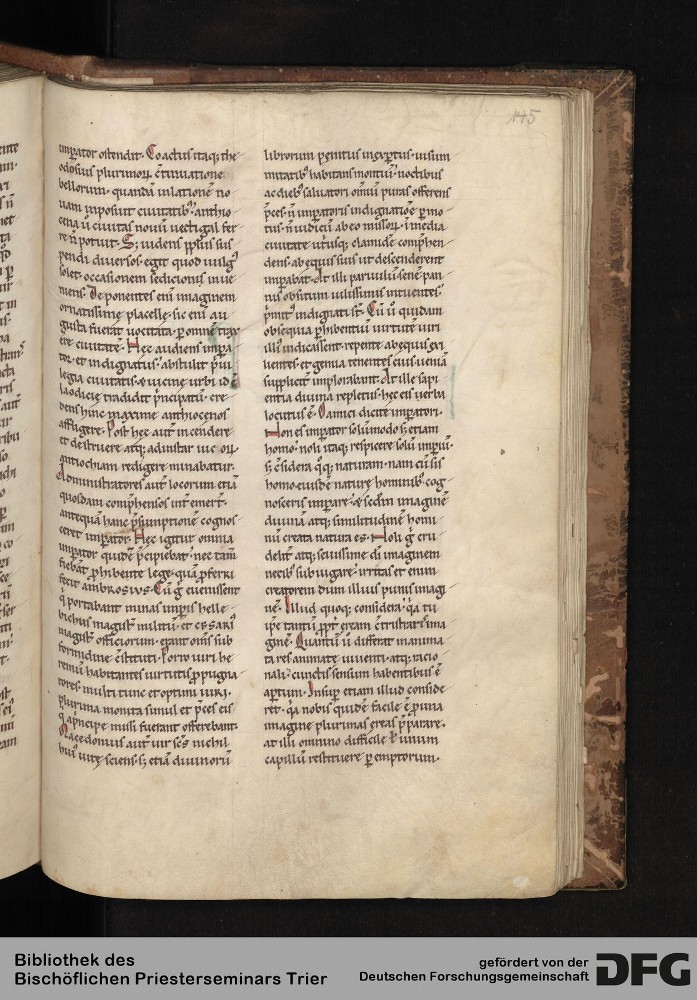 145
imperator ostendit. Coactus itaq; the
odosius plurimorum continuatione
bellorum. quandā inlationē no
uam inposuit ciuitatib;. anthio
cena ū ciuitas nouū uectigal fer
re n̄ potuit. S; uidens ppl̄us sus
pendi diuersos. egit quod uulg᷒
solet. occasionem sedicionis inue
niens. Deponentes enī imaginem
ornatissimę placellę. sic enī au
gusta fuerat uocitata. ꝑ omnē
ere ciuitatē. Hęc audiens impa
tor. et indignatus. abstulit p̄ui
legia ciuitatis. & uicine urbi
laodicię tradidit p̄ncipatū. cre
dens hinc maxime anthiocenos
affligere. Post hęc aut̄ incendere
et destruere atq; ad instar
antiochiam redigere minabatur.
Administratores aut̄ locorum etiā
quosdam comp̄hensos int̄emert̄.
antequā hanc p̄sūmptionē cognos
ceret imperator. Hęc igitur omnia
imperator quidē p̄cipiebat. nec tam̄
fiebāt ꝓhibente lege. quā ꝓferri
fecit AMBROSIVS. Cū g̊ euenissent
q̇ portabant minas imperis helle
bichus magist̄ militū. et CESARI᷒
magist̄ officiorum. erant om̄s sub
formidine cōstituti. Porro uiri he
remū habitantes uirtutis ꝓpugna
tores. multi tunc et optimi uiri.
plurima monita simul et p̄ces eis
q̇ a principe missi fuerant offerebant.
Macedonius aut̄ uir scs̄ nichil
hui᷒ uitę sciens. s; etiā diuinorū
librorum penitus inexptus. uisum
mitatib; habitans montiū. noctibus
ac dieb; saluatori omniū puras offerens
p̄ces. n̄ imperatoris indignatiōe ꝑmo
tus. n̄ iudiciū ab eo missorum. in media
ciuitate utrusq; clamidē comp̄hen
dens. ab equis suis ut descenderent
imparabat. At illi paruulū senē pan
nis obsitum uilissimis intuentes.
p̄mit᷒ indignati st̄. Cū ū quidam
obsequia ꝓhibentiū uirtutē uiri
illis indicassent. repente ab equis sa
lientes. et genua tenentes eius. ueniā
supplicit̄ implorabant. At ille sapi
entia diuina repletus. hęc eis uerba
locutus ē. O amici dicite imperatori.
Non es imperator solūmodo s; etiam
homo. noli itaq; respicere solū imperiū.
s; cōsidera q̊q; naturam. nam cū sis
homo. eiusdē naturę hominib; cog
nosceris imparare. & scdm imaginē
diuinā atq; similitudinē homi
nū creata natura ē. Noli g̊ cru
delit̄ atq; seuissime dī imaginem
necib; subiugare. irritas et enim
creatorem. dum illius punis imagi
nē. Illud quoq; considera. q̇a tu
ipse tantū ꝓpt̄ eream cōtristaris ima
ginē. Quantū ū differat inanima
ta res animatę. uiuenti. atq; ratio
nali. cunctis sensum habentibus ē
aptum. Insup etiam illud conside
ret. q̇a nobis quidē facile ē. ꝓ una
imagine plurimas ereas p̄parare.
at illi omnino difficile uel unum
capillū restituere ꝑemptorum.
Bibliothek des
Bischöflichen Priesterseminars Trier
gefördert von der
Deutschen Forschungsgemeinschaft
DFG